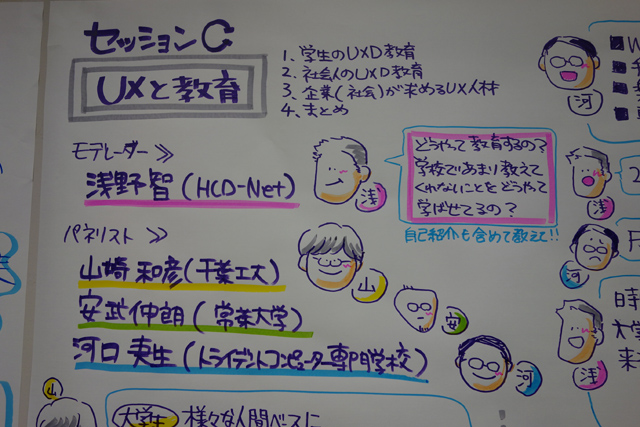 セッション
UXと教育
1. 学生のUXD教育
2. 社会人のUXD教育
3. 企業(社会)が求めるUX人材
4. まとめ
モデレーター ≫
浅野 智 (HCD-Net)
浅
どうやって教育するの?
学校であまり教えて
くれないことをどうやって
学ばせてるの?
自己紹介も含めて教えて!!
パネリスト ≫
山崎 和彦(千葉工大)
山
安武伸朗 (常葉大学)
安
河口 (トライデントコンピューター専門学校)
河
河
浅
2
河
時
大学
来
浅
山
大学生 様々な人間ベースに